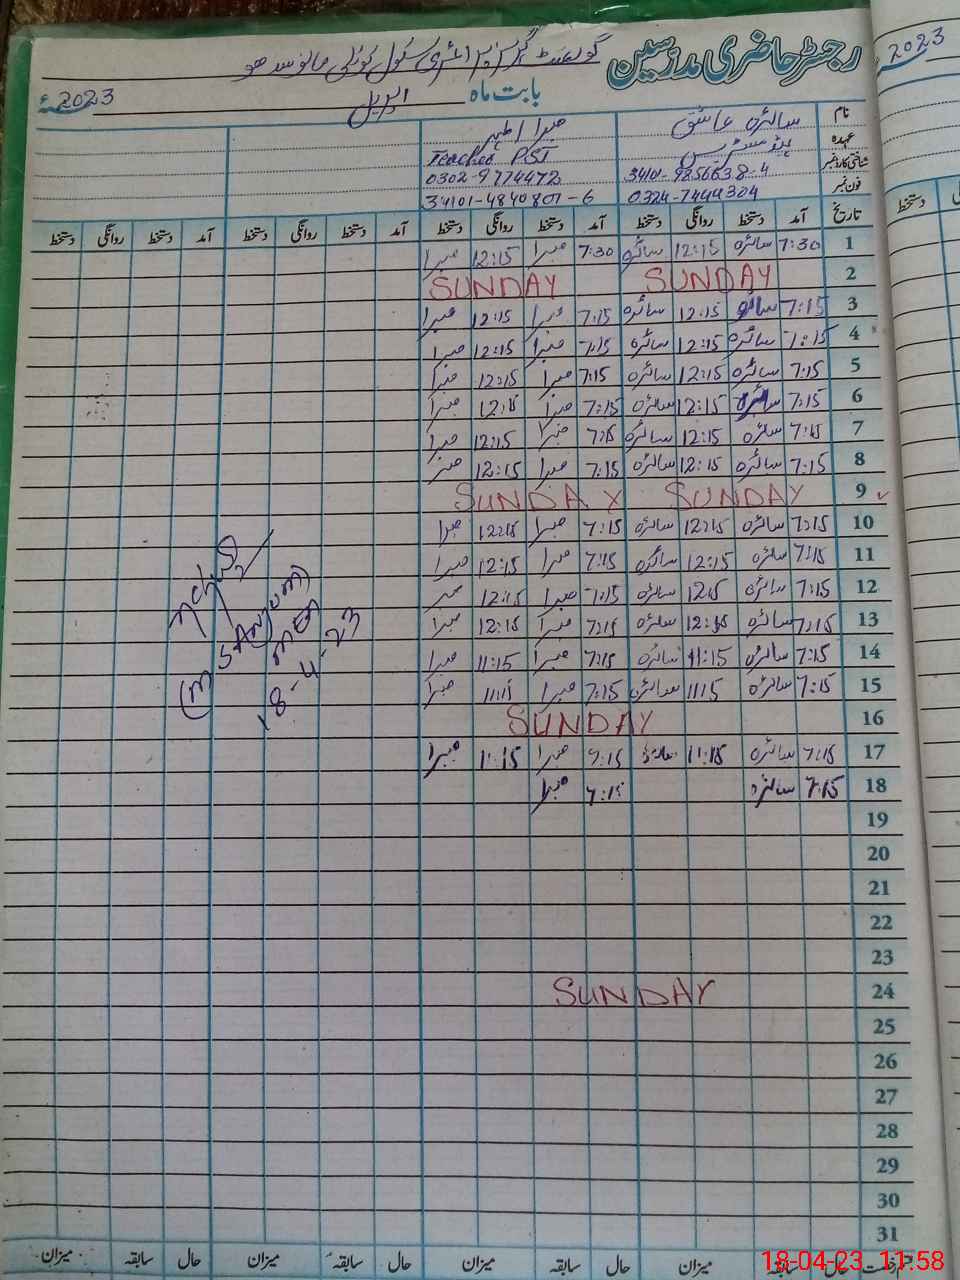 رجسٹر حاضری مدرسین
گورنمنٹ گرلز پرائمری سکول کوٹلی مانوسدھو
بابت ماہ اپریل 2023ء
2023
نام سائرہ عاشق
عہدہ ہیڈ مسٹریس Teacher PST
شناختی کارڈ نمبر 0302-9774472
فون نمبر 0324-7444304 34101-4840801-6
تاریخ آمد دستخط روانگی دستخط آمد دستخط روانگی دستخط آمد دستخط روانگی دستخط آمد دستخط روانگی دستخط
دستخط
1 7:30 سائرہ 12:15 سائرہ 7:30 میرا 12:15 میرا
2 SUNDAY SUNDAY
3 7:15 سائرہ 12:15 سائرہ 7:15 میرا 12:15 میرا
4 7:15 سائرہ 12:15 سائرہ 7:15 میرا 12:15 میرا
5 7:15 سائرہ 12:15 سائرہ 7:15 میرا 12:15 میرا
6 7:15 سائرہ 12:15 سائرہ 7:15 میرا 12:15 میرا
7 7:15 سائرہ 12:15 سائرہ 7:15 میرا 12:15 میرا
8 7:15 سائرہ 12:15 سائرہ 7:15 میرا 12:15 میرا
9 SUNDAY SUNDAY
10 7:15 سائرہ 12:15 سائرہ 7:15 میرا 12:15 میرا
11 7:15 سائرہ 12:15 سائرہ 7:15 میرا 12:15 میرا
12 7:15 سائرہ 12:15 سائرہ 7:15 میرا 12:15 میرا
13 7:15 سائرہ 12:15 سائرہ 7:15 میرا 12:15 میرا
14 7:15 سائرہ 11:15 سائرہ 7:15 میرا 11:15 میرا
15 7:15 سائرہ 11:15 سائرہ 7:15 میرا 11:15 میرا
16 SUNDAY
17 7:15 سائرہ 11:15 سائرہ 7:15 میرا 11:15 میرا
18 7:15 سائرہ 7:15 میرا
19
20
21
22
23
24 SUNDAY
25
26
27
28
29
30
31
(M SANJUM)
MEA
18-4-23
سابقہ حال میزان سابقہ حال میزان سابقہ حال میزان سابقہ حال میزان
18-04-23 11:58